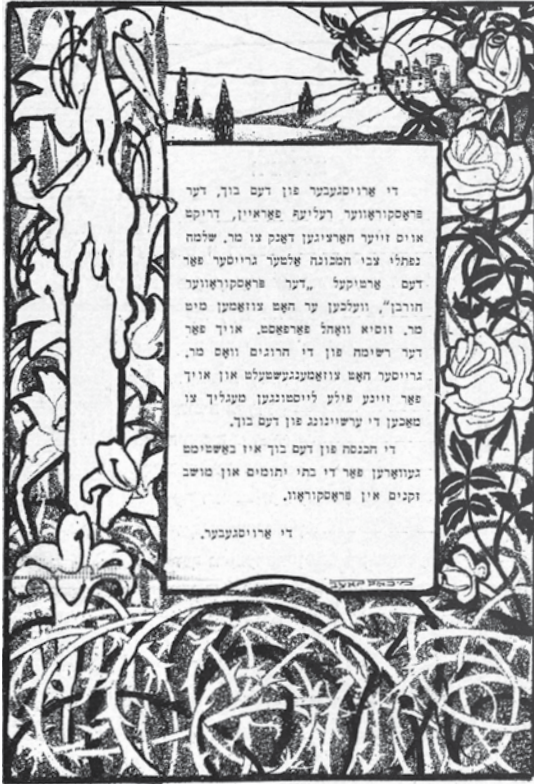 די ארויסגעבער פון דעם בוך, דער
פראסקוראווער רעליעף פאראיין, דריקט
אויס זייער הארציגען דאנק צו מר. שלמה
נפתלי צבי המכונה אלטער גרייסער פאר
דעם ארטיקעל „דער פראסקוראווער
חורבן“, וועלכען ער האט צוזאמען מיט
מר. זוסיא וואהל פארפאסט. אויך פאר
דער רשימה פון די הרוגים וואס מר.
גרייסער האט צוזאמענגעשטעלט און אויך
פאר זיינע פילע לייסטונגען מעגליך צו
מאכען די ערשיינונג פון דעם בוך.
די הכנסה פון דעם בוך איז באשטימט
געווארען פאר די בתי יתומים און מושב
זקנים אין פראסקוראוו.
די ארויסגעבער.